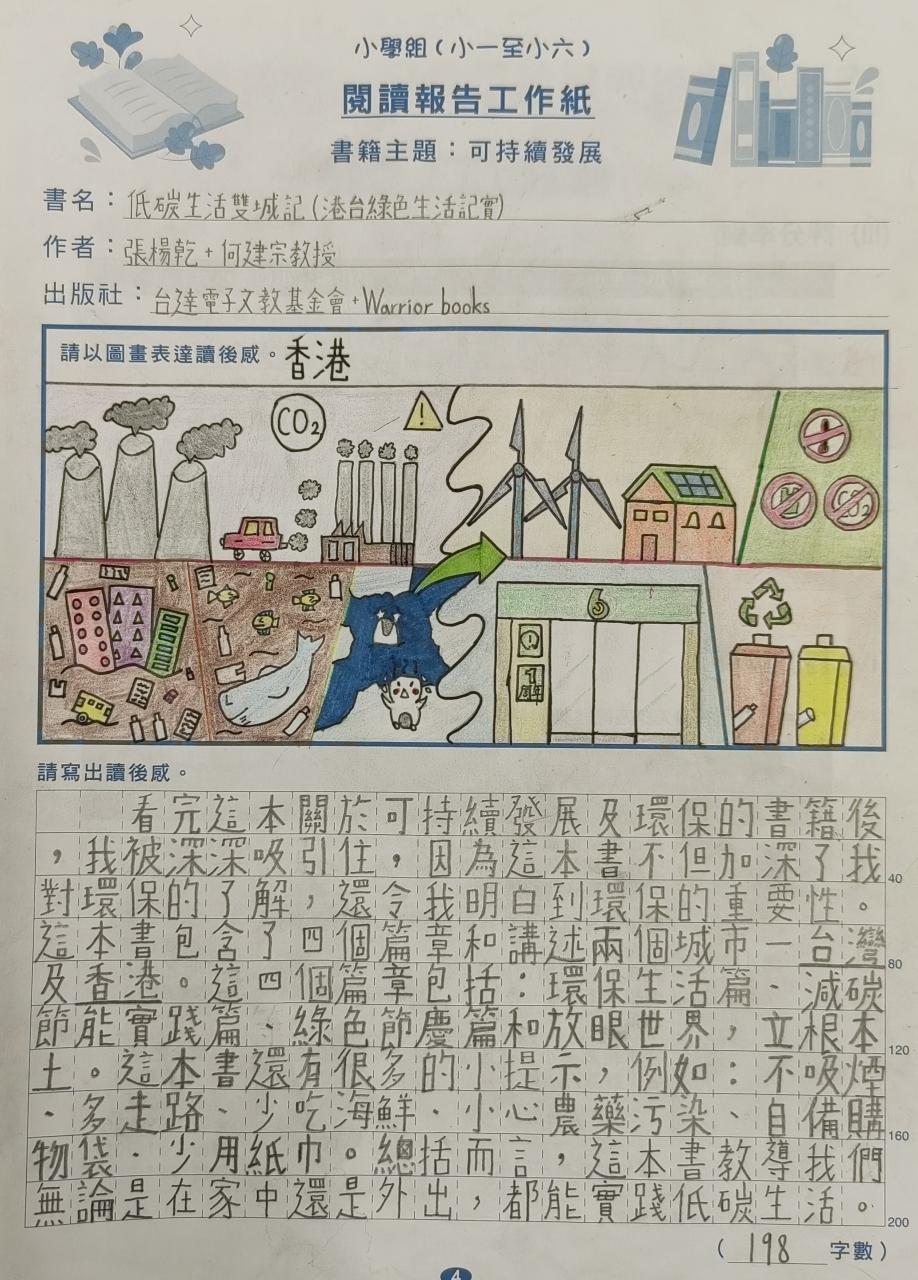 小學組（小一至小六）
閱讀報告工作紙
書籍主題：可持續發展
書名：低碳生活雙城記(港台綠色生活記實)
作者：張楊乾+何建宗教授
出版社：台達電子文教基金會+Warrior books
請以圖畫表達讀後感。香港
CO₂
!
CO₂
6
請寫出讀後感。
看完這本關於可持續發展及環保的書籍後
，我被深深吸引住，因為這本書不但加深了我
40
對環保的了解，還令我明白到環保的重要性。
這本書包含了四個篇章和講述兩個城市—台灣
80
及香港。這四個篇章包括：環保生活篇、減碳
節能實踐篇、綠色節慶篇和放眼世界，立根本
120
土。這本書還有很多的小提示，例如：不吸煙
、多走路、少吃海鮮、小心農藥污染、自備購
160
物袋、少用紙巾。總括而言，這本書教導我們
無論是在家中還是外出，都能實踐低碳生活。
200
（198字數）
4